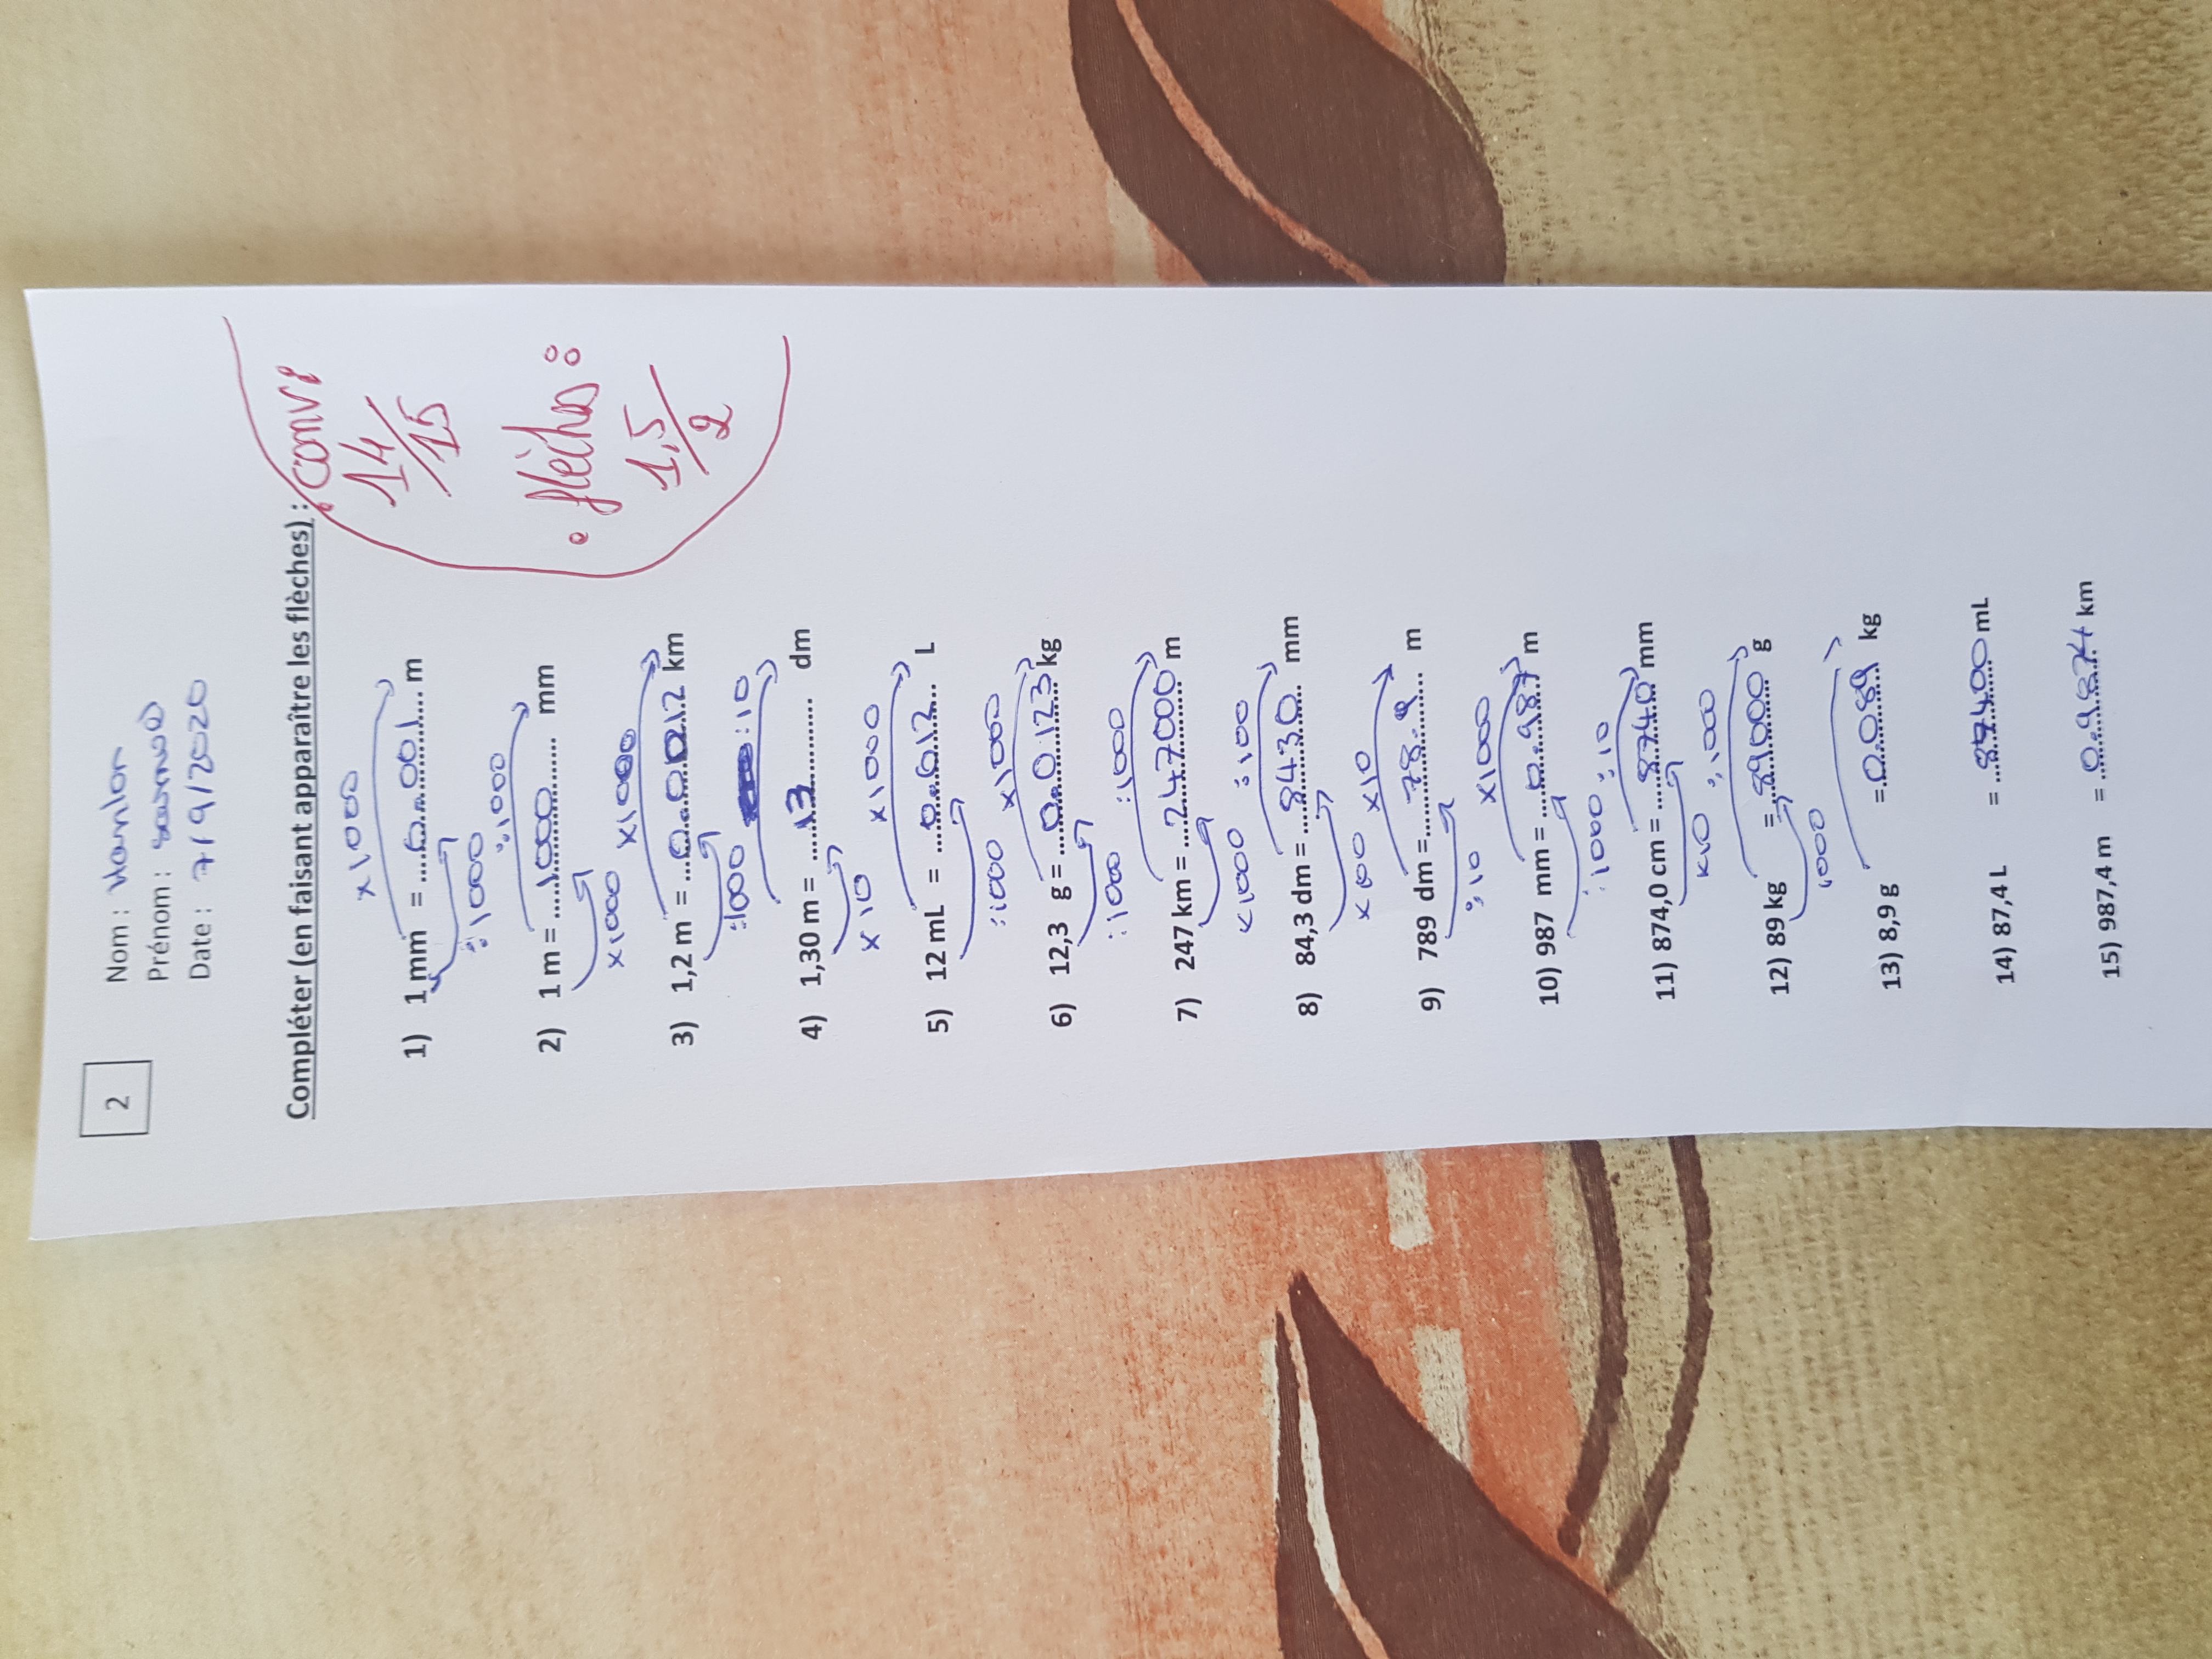 2
Nom : Hanlon
Prénom : Samuel
Date : 7/9/2020
Compléter (en faisant apparaître les flèches) :
• conv :
14/15
• flèches :
1,5/2
x1000
1) 1 mm = 0.001 m
:1000
:1000
2) 1 m = 1000 mm
x1000
x1000
3) 1,2 m = 0.0012 km
:1000
:10
4) 1,30 m = 13 dm
x10
x1000
5) 12 mL = 0.012 L
:1000
x1000
6) 12,3 g = 0.0123 kg
:1000
:1000
7) 247 km = 247000 m
x1000
:100
8) 84,3 dm = 8430 mm
x100
x10
9) 789 dm = 78.9 m
:10
x1000
10) 987 mm = 0.987 m
:1000
:10
11) 874,0 cm = 8740 mm
x10
:1000
12) 89 kg = 89000 g
1000
13) 8,9 g = 0.089 kg
14) 87,4 L = 87400 mL
15) 987,4 m = 0.9874 km